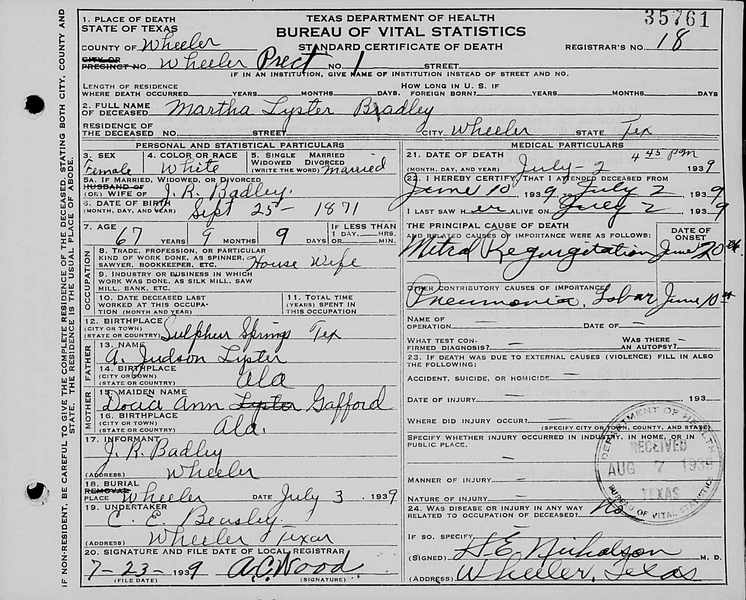 35761
1. PLACE OF DEATH
STATE OF TEXAS
TEXAS DEPARTMENT OF HEALTH
BUREAU OF VITAL STATISTICS
STANDARD CERTIFICATE OF DEATH
COUNTY OF Wheeler
REGISTRAR'S NO. 18
CITY OR PRECINCT NO. Wheeler Prect NO. 1 STREET
IF IN AN INSTITUTION, GIVE NAME OF INSTITUTION INSTEAD OF STREET AND NO.
LENGTH OF RESIDENCE WHERE DEATH OCCURRED YEARS MONTHS DAYS
HOW LONG IN U. S. IF FOREIGN BORN? YEARS MONTHS DAYS
2. FULL NAME OF DECEASED Martha Lyster Badley
RESIDENCE OF THE DECEASED NO. STREET CITY Wheeler STATE Tex
PERSONAL AND STATISTICAL PARTICULARS
3. SEX Female
4. COLOR OR RACE White
5. SINGLE MARRIED WIDOWED DIVORCED (WRITE THE WORD) Married
5A. IF MARRIED, WIDOWED, OR DIVORCED
HUSBAND OF (OR) WIFE OF J. R. Badley.
6. DATE OF BIRTH (MONTH, DAY, AND YEAR) Sept 25- 1871
7. AGE 67 YEARS 9 MONTHS 9 DAYS
IF LESS THAN 1 DAY, HRS. MIN.
OCCUPATION
8. TRADE, PROFESSION, OR PARTICULAR KIND OF WORK DONE, AS SPINNER, SAWYER, BOOKKEEPER, ETC. House Wife
9. INDUSTRY OR BUSINESS IN WHICH WORK WAS DONE, AS SILK MILL, SAW MILL, BANK, ETC.
10. DATE DECEASED LAST WORKED AT THIS OCCUPATION (MONTH AND YEAR)
11. TOTAL TIME (YEARS) SPENT IN THIS OCCUPATION
12. BIRTHPLACE (CITY OR TOWN) (STATE OR COUNTRY) Sulphur Springs Tex
FATHER
13. NAME A. Judson Lyster
14. BIRTHPLACE (CITY OR TOWN) (STATE OR COUNTRY) Ala
MOTHER
15. MAIDEN NAME Docia Ann Lyster Gafford
16. BIRTHPLACE (CITY OR TOWN) (STATE OR COUNTRY) Ala.
17. INFORMANT J. R. Badley
(ADDRESS) Wheeler
18. BURIAL REMOVAL
PLACE Wheeler DATE July 3 1939
19. UNDERTAKER C. E. Beasley
(ADDRESS) Wheeler Texas
20. SIGNATURE AND FILE DATE OF LOCAL REGISTRAR
7-23- 1939 A.C. Wood.
(FILE DATE) (SIGNATURE)
MEDICAL PARTICULARS
21. DATE OF DEATH 4 45 PM
(MONTH, DAY, AND YEAR) July-2 1939
22. I HEREBY CERTIFY, THAT I ATTENDED DECEASED FROM
June 10 1939 TO July 2 1939
I LAST SAW H er ALIVE ON July 2 1939
THE PRINCIPAL CAUSE OF DEATH AND RELATED CAUSES OF IMPORTANCE WERE AS FOLLOWS:
DATE OF ONSET
Mitral Regurgitation June 20th
OTHER CONTRIBUTORY CAUSES OF IMPORTANCE
Pneumonia, Lobar June 10th
NAME OF OPERATION - DATE OF -
WHAT TEST CONFIRMED DIAGNOSIS? - WAS THERE AN AUTOPSY? -
23. IF DEATH WAS DUE TO EXTERNAL CAUSES (VIOLENCE) FILL IN ALSO THE FOLLOWING:
ACCIDENT, SUICIDE, OR HOMICIDE -
DATE OF INJURY - 193
WHERE DID INJURY OCCUR? -
(SPECIFY CITY OR TOWN, COUNTY, AND STATE)
SPECIFY WHETHER INJURY OCCURRED IN INDUSTRY, IN HOME, OR IN PUBLIC PLACE.
MANNER OF INJURY -
NATURE OF INJURY -
24. WAS DISEASE OR INJURY IN ANY WAY RELATED TO OCCUPATION OF DECEASED? No
IF SO, SPECIFY -
(SIGNED) H.E. Nicholson M. D.
(ADDRESS) Wheeler, Texas
DEPARTMENT OF HEALTH
RECEIVED
AUG 7 1939
TEXAS
BUREAU OF VITAL STATISTICS
IF NON-RESIDENT, BE CAREFUL TO GIVE THE COMPLETE RESIDENCE OF THE DECEASED, STATING BOTH CITY, COUNTY AND STATE. THE RESIDENCE IS THE USUAL PLACE OF ABODE.